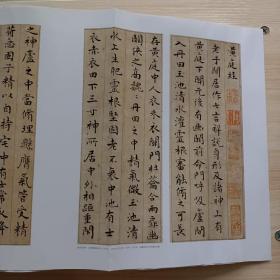 黄庭經
老子閒居作七言解說身形及諸神上有
黄庭下關元後有幽闕前命門呼吸廬間
入丹田玉池清水灌靈根審能脩之可長
存黄庭中人衣朱衣關門壯籥合兩扉幽
闕俠之高巍巍丹田之中精氣微玉池清
水上生肥靈根堅固老不衰中池有士
衣赤衣田下三寸神所居中外相距重閉
之神廬之中當脩理懸膺氣管受精
符急固子精以自持宅中有士常衣絳